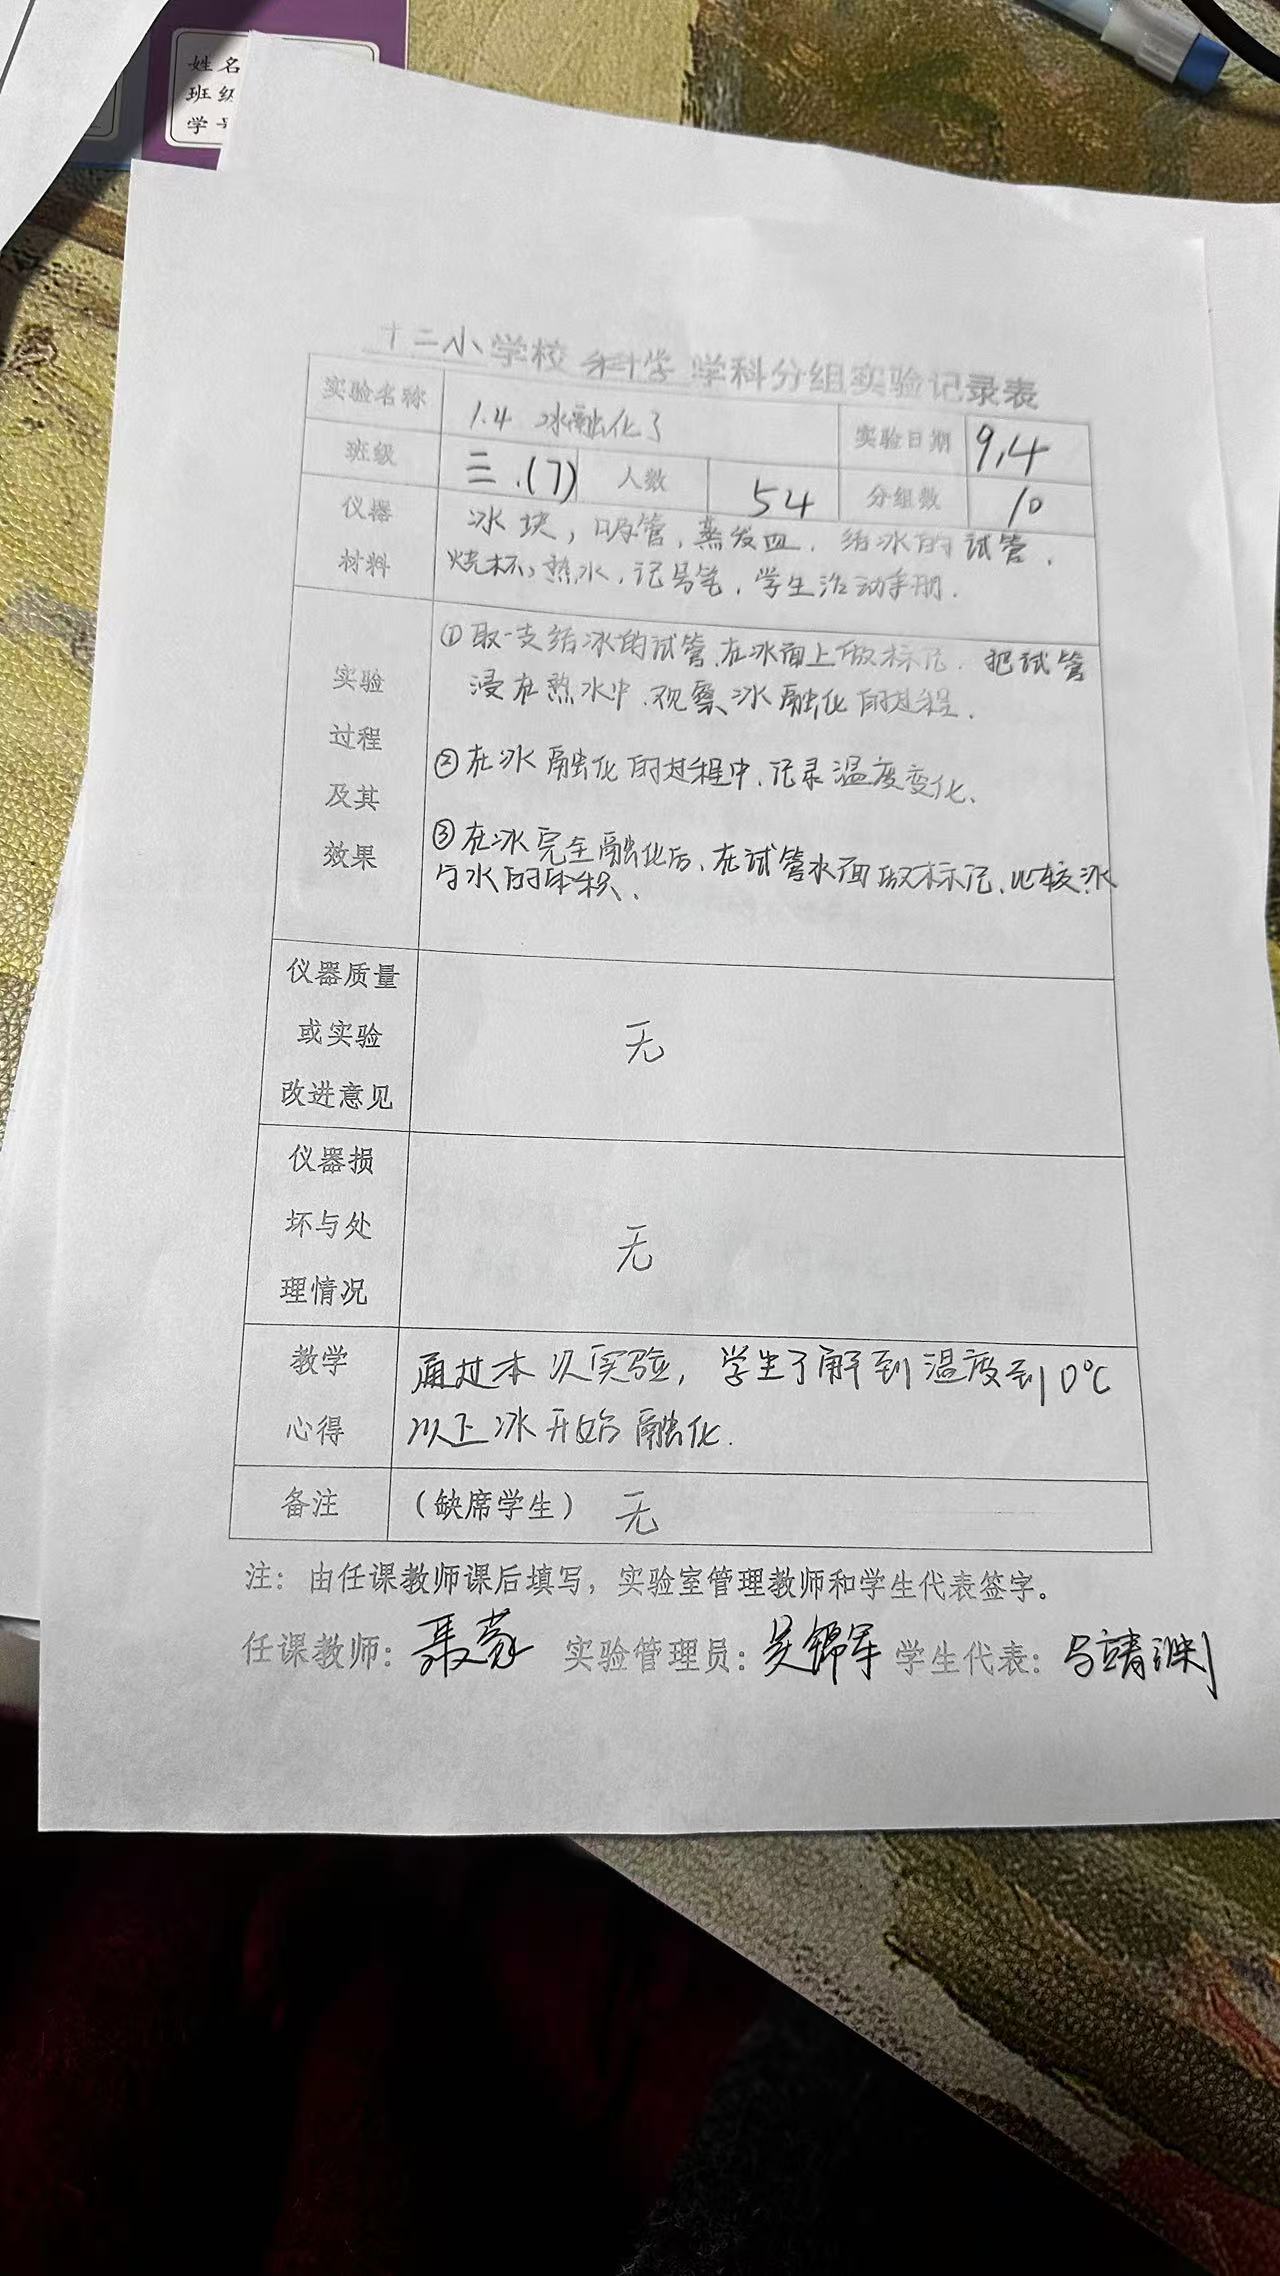 姓名
班级
学号
十二小学校 科学 学科分组实验记录表
实验名称 1.4 冰融化了 实验日期 9.14
班级 三.(7) 人数 54 分组数 10
仪器材料 冰块,吸管,蒸发皿.结冰的试管.
烧杯,热水,记号笔,学生活动手册.
实验过程及其效果
①取一支结冰的试管、在冰面上做标记.把试管
浸在热水中、观察冰融化的过程.
②在冰融化的过程中、记录温度变化、
③在冰完全融化后、在试管水面做标记、比较冰
与水的体积、
仪器质量或实验改进意见 无
仪器损坏与处理情况 无
教学心得 通过本次实验,学生了解到温度到0℃
以上冰开始融化.
备注 (缺席学生) 无
注:由任课教师课后填写,实验室管理教师和学生代表签字。
任课教师: 实验管理员:吴锦军 学生代表: